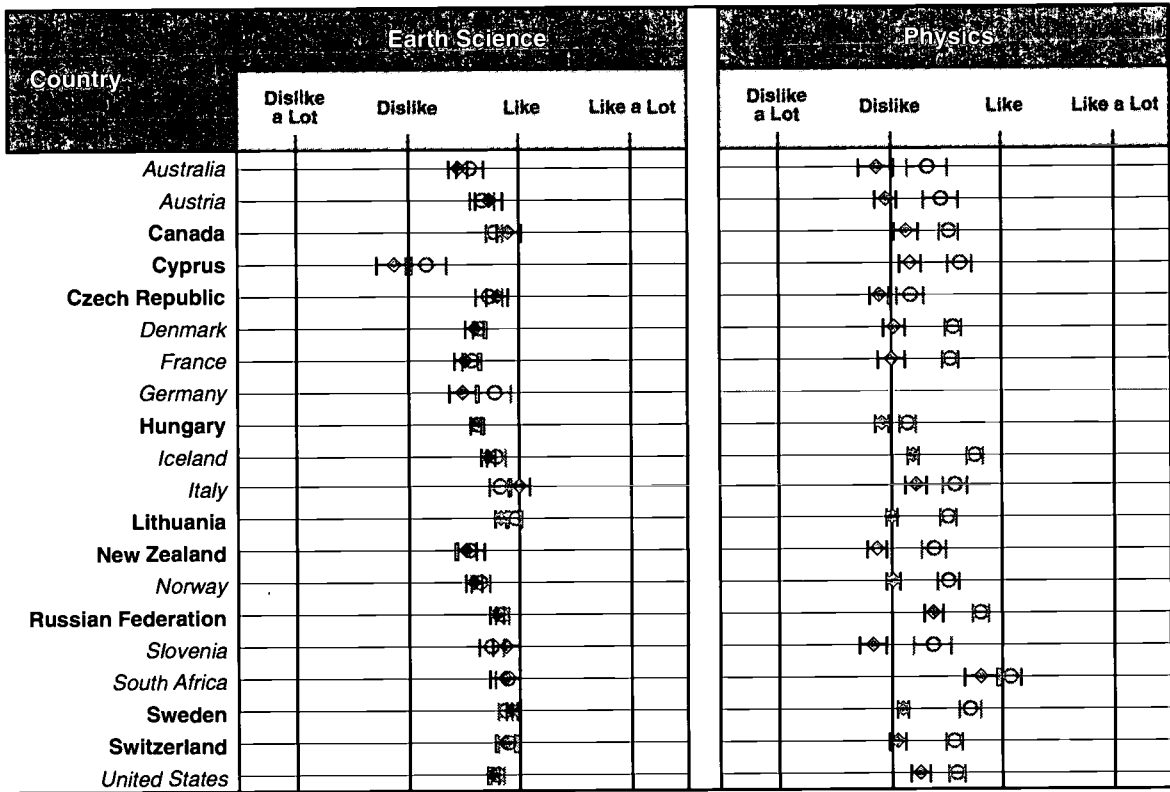 Earth Science
Physics
Country
Dislike a Lot
Dislike
Like
Like a Lot
Dislike a Lot
Dislike
Like
Like a Lot
Australia
Austria
Canada
Cyprus
Czech Republic
Denmark
France
Germany
Hungary
Iceland
Italy
Lithuania
New Zealand
Norway
Russian Federation
Slovenia
South Africa
Sweden
Switzerland
United States